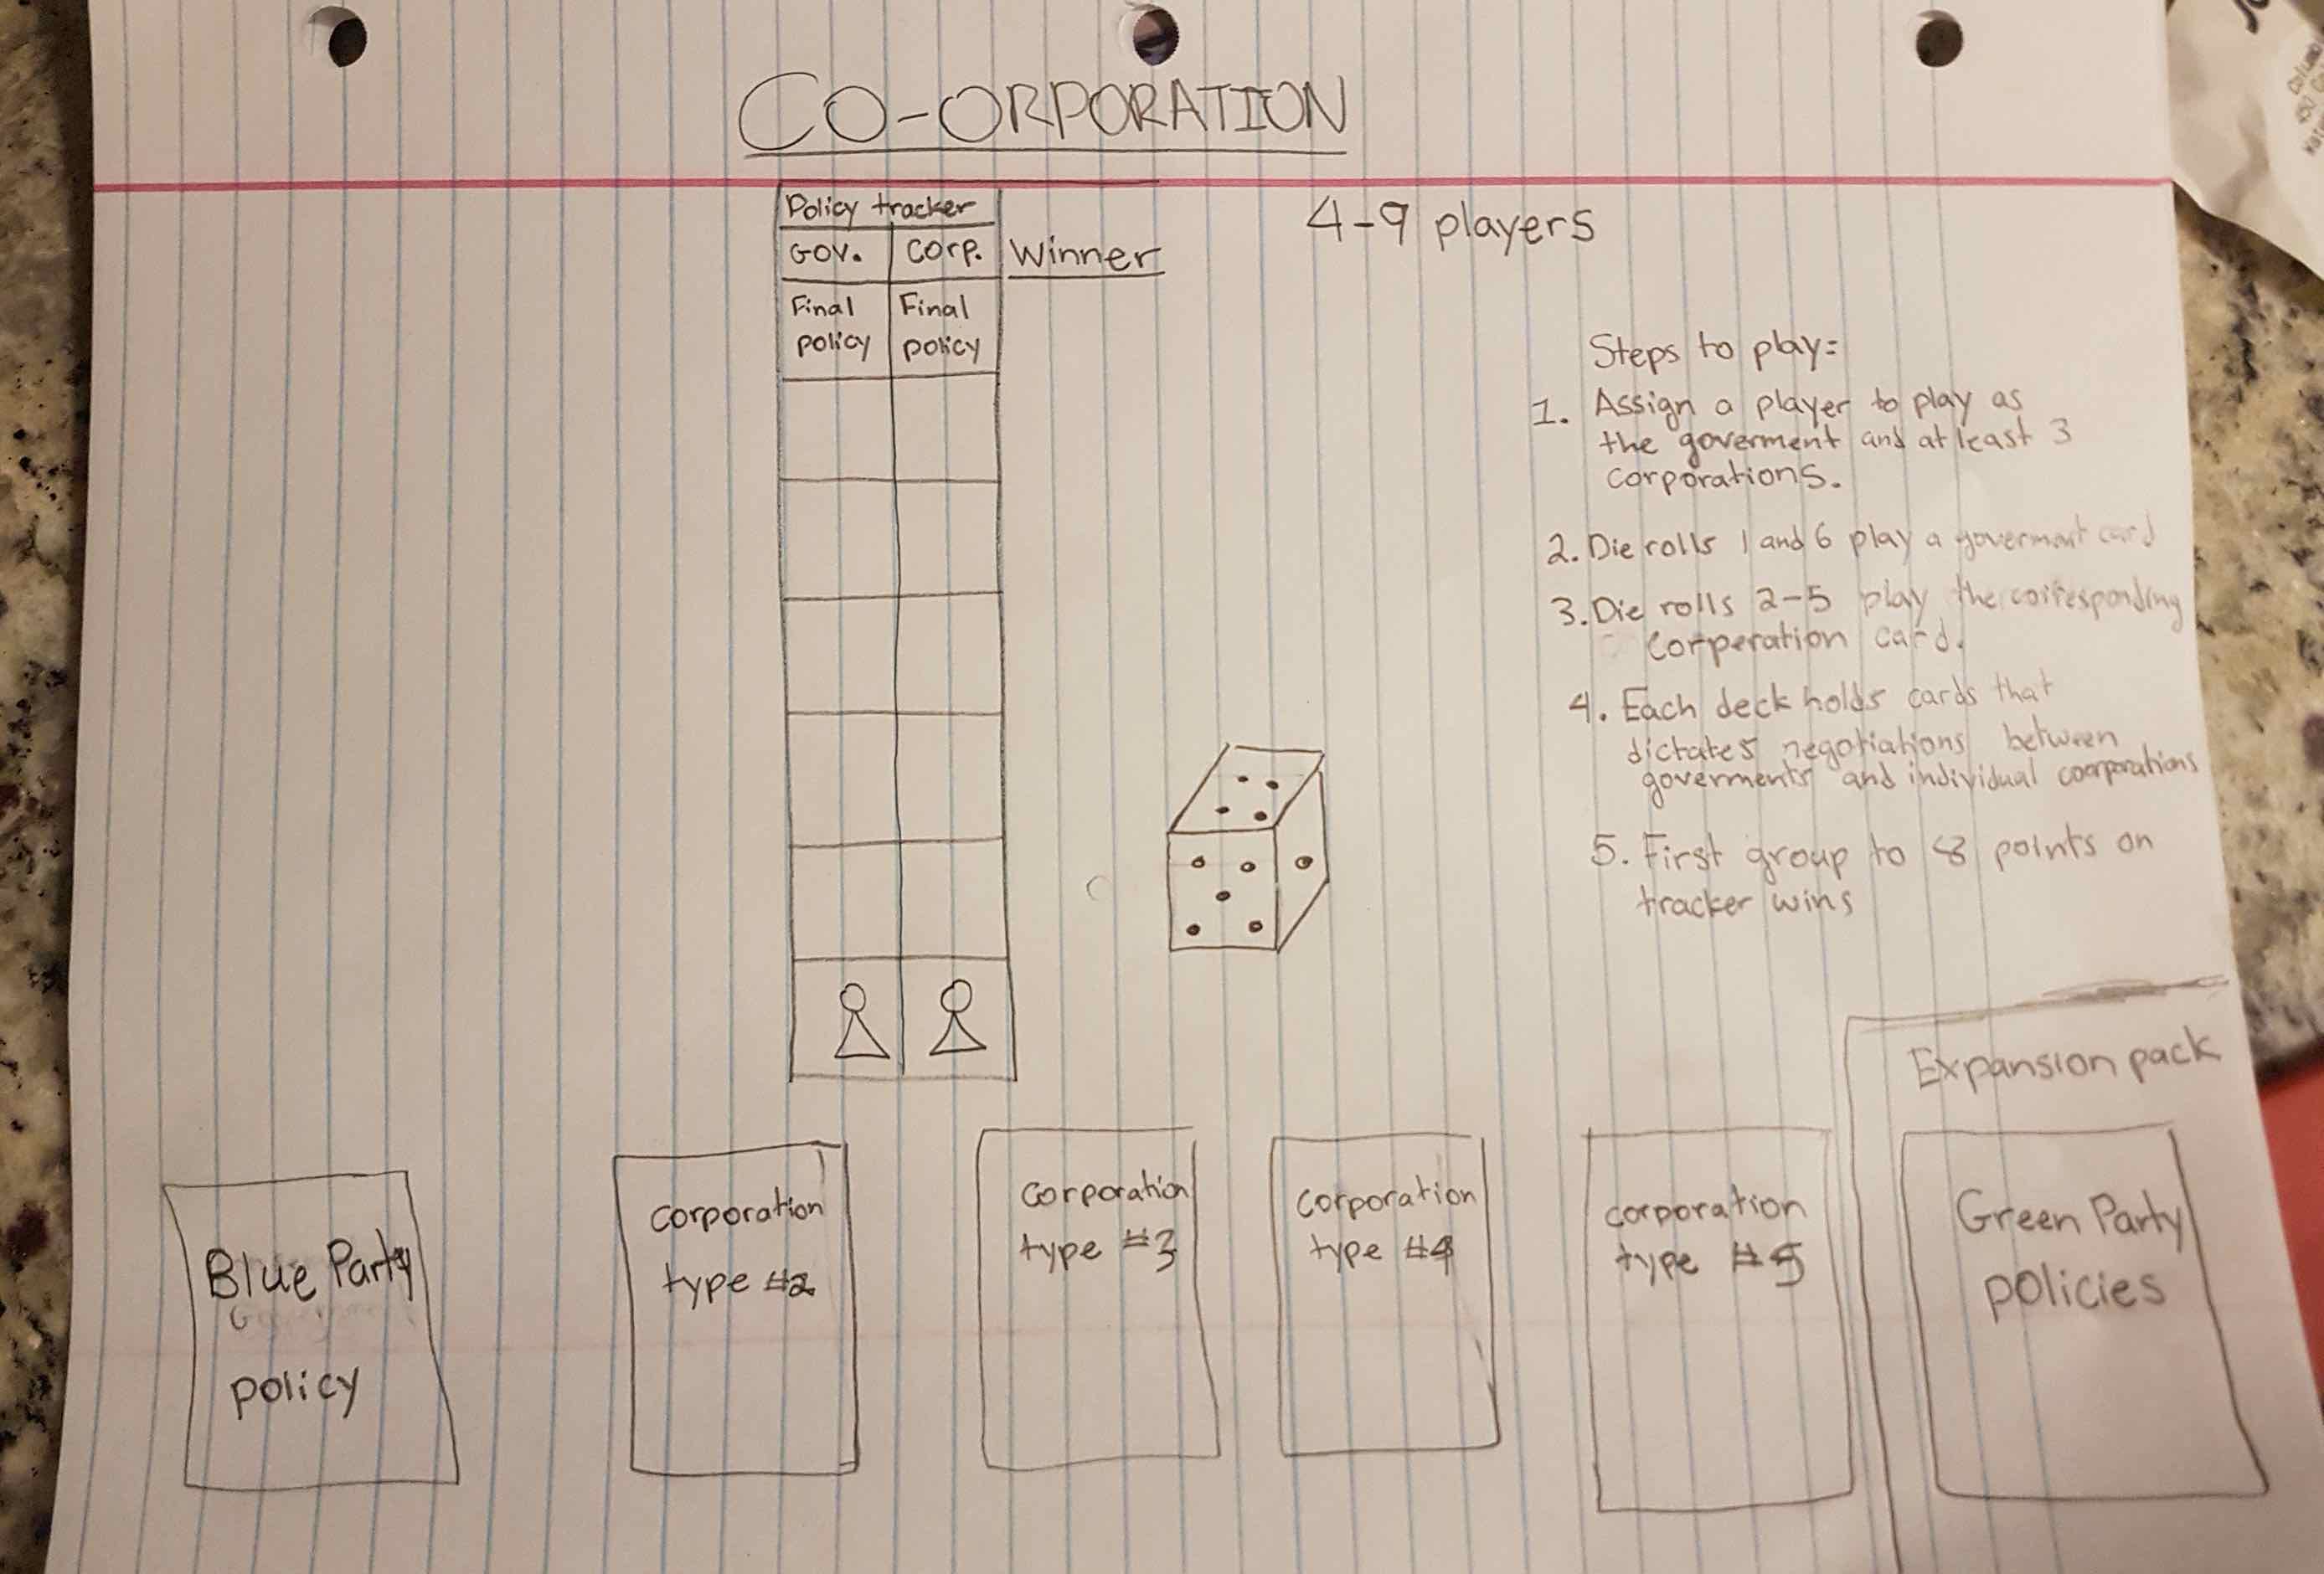 CO-ORPORATION
Policy tracker
Gov. Corp. Winner
Final Final
policy policy
4-9 players
Steps to play:
1. Assign a player to play as
the goverment and at least 3
corporations.
2. Die rolls 1 and 6 play a goverment card
3. Die rolls 2-5 play the corresponding
Corperation card.
4. Each deck holds cards that
dictates negotiations between
goverments and individual coorporations
5. First group to 8 points on
tracker wins
Expansion pack
Blue Party
policy
corporation
type #2
corporation
type #3
corporation
type #4
corporation
type #5
Green Party
policies